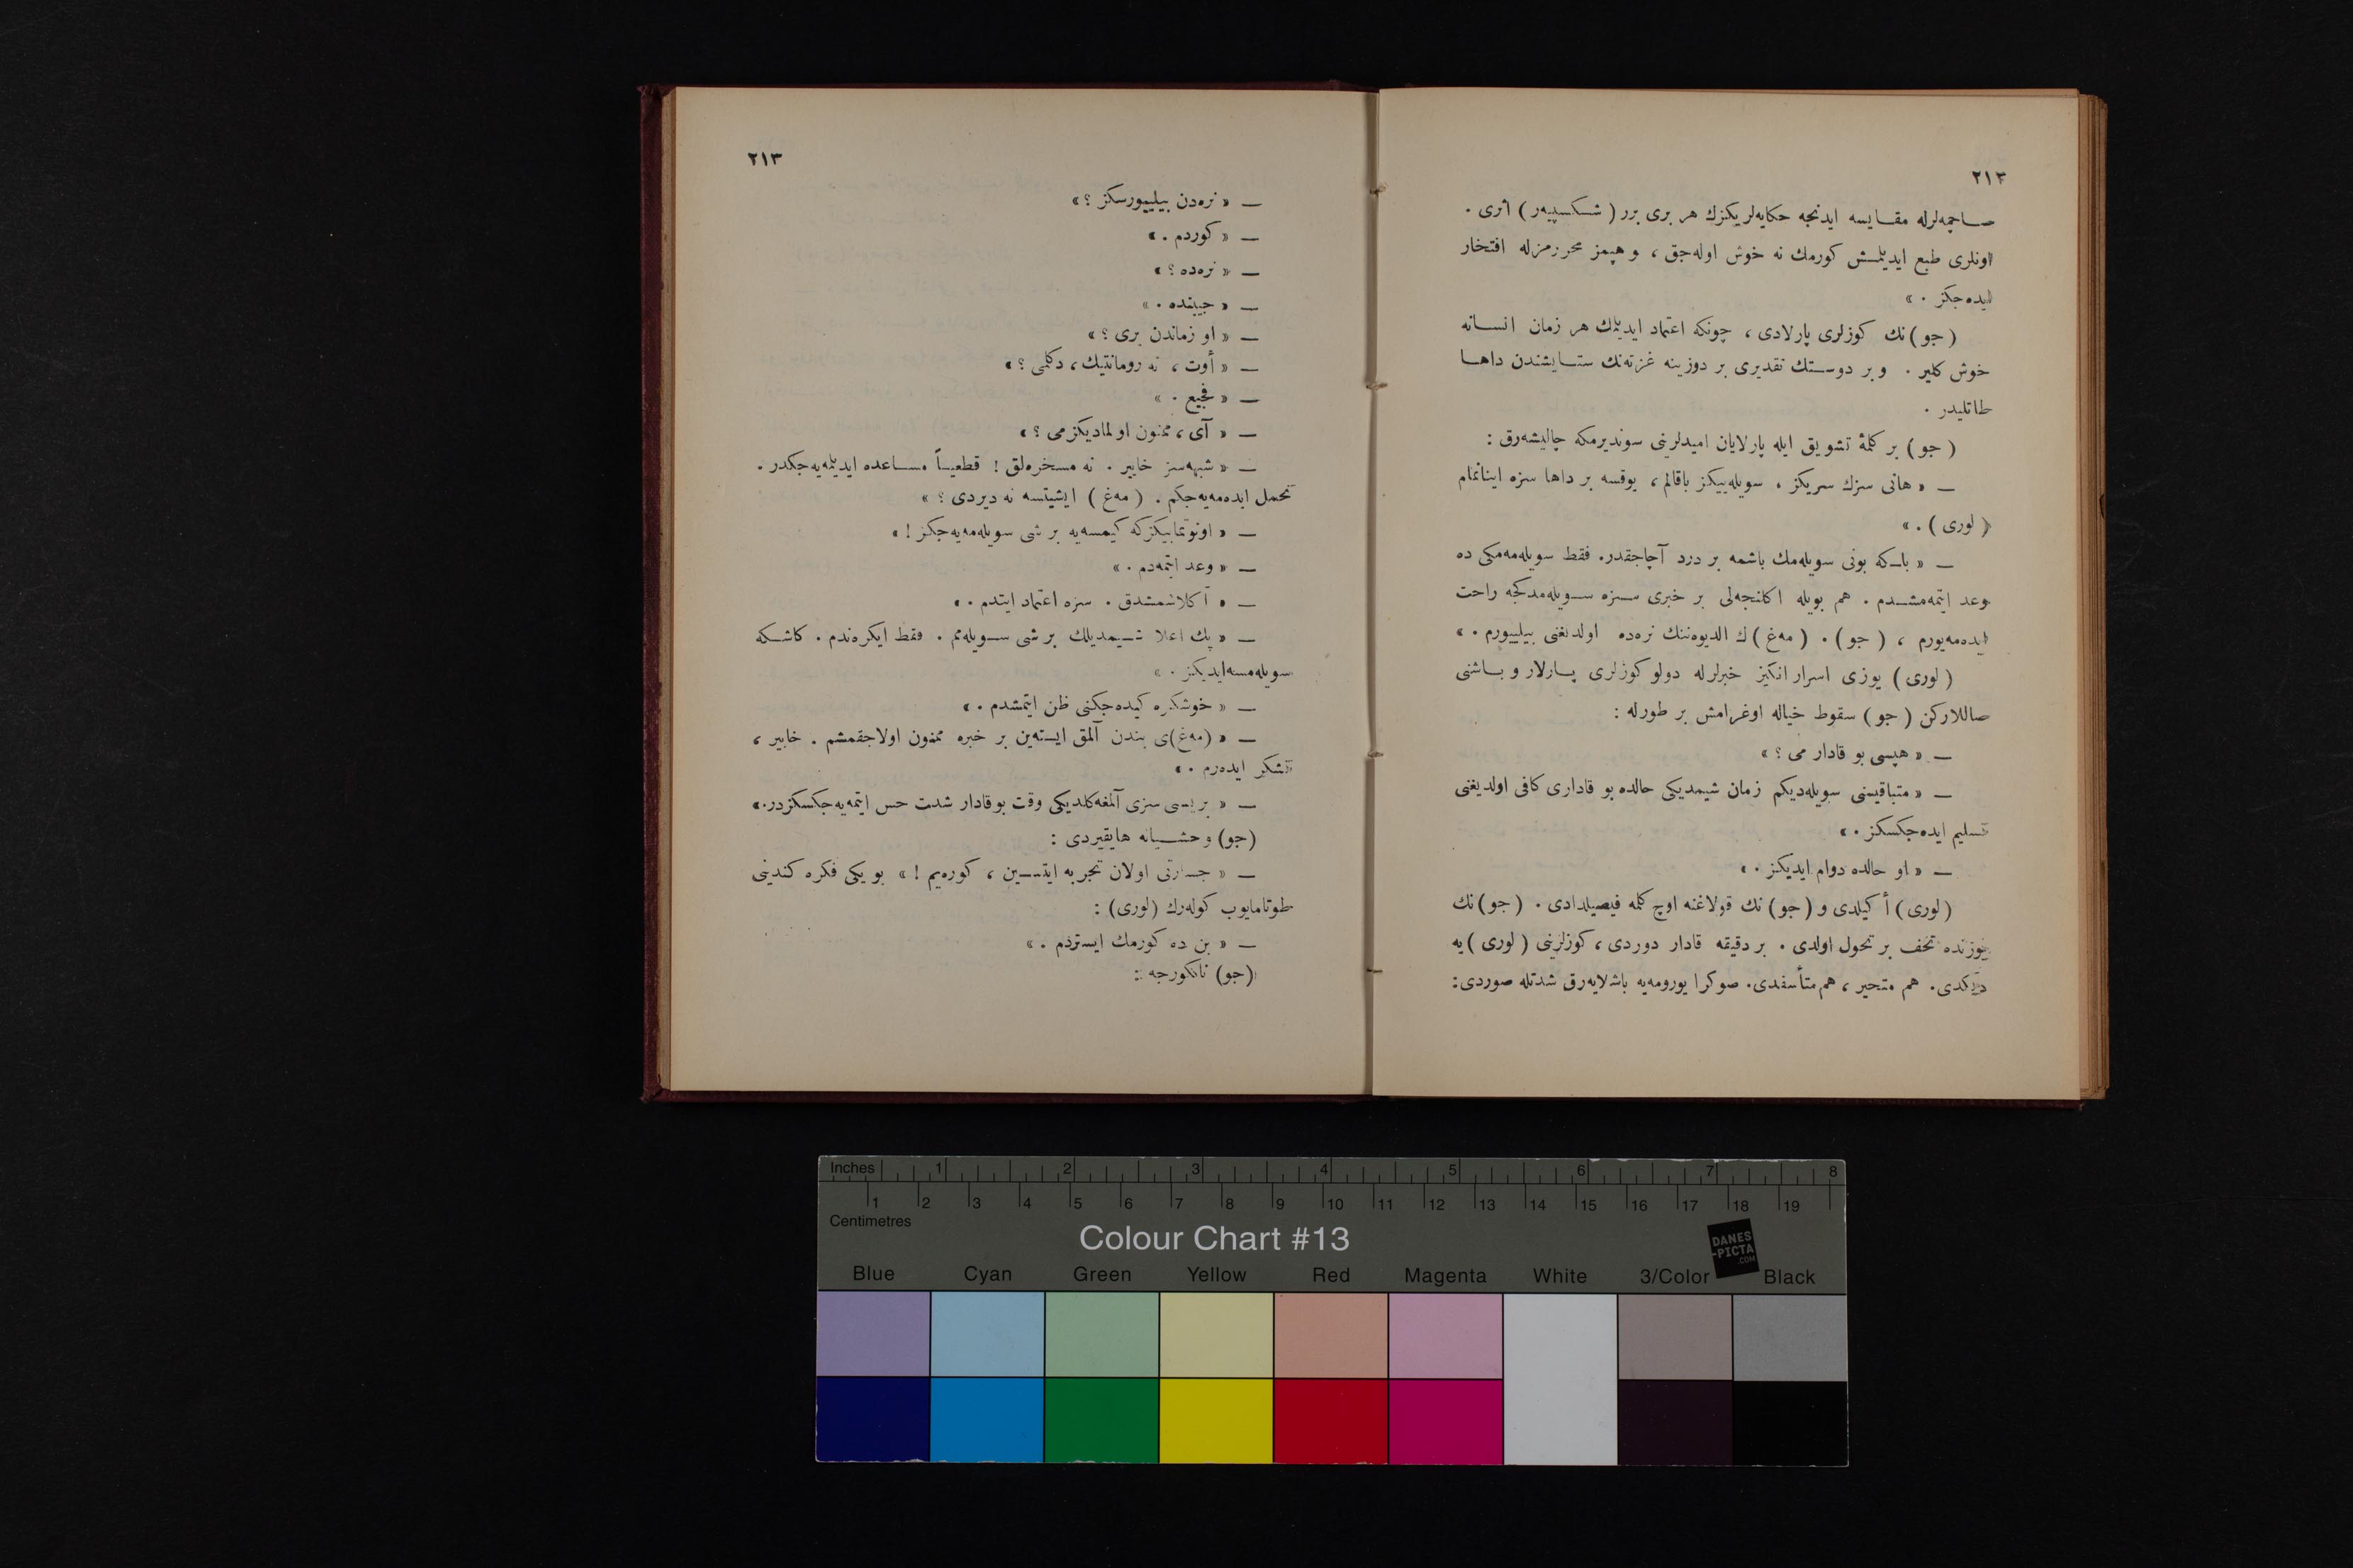 ٢١٢
صاچمه‌لرله مقایسه ایدنجه حکایه‌لریکزك هر بری برر (شکسپیه‌ر) اثری .
اونلری طبع ایدیلمش کورمك نه خوش اوله‌جق ، و هپمز محررمزله افتخار
ایده‌جکز . »
(جو) نك کوزلری پارلادی ، چونکه اعتماد ایدیلمك هر زمان انسانه
خوش کلیر . و بر دوستك تقدیری بر دوزینه غزته‌نك ستایشندن داها
طاتلیدر .
(جو) بر کلمهٔ تشویق ایله پارلایان امیدلرینی سوندیرمکه چالیشه‌رق :
— « هانی سزك سریکز ، سویله‌ییکز باقالم ، یوقسه بر داها سزه اینانمام
(لوری) . »
— « بلکه بونی سویله‌مك باشمه بر درد آچاجقدر. فقط سویله‌مه‌مکی ده
وعد ایتمه‌مشدم . هم بویله اکلنجه‌لی بر خبری سزه سویله‌مدکجه راحت
ایده‌مه‌یورم ، (جو) . (مه‌غ) ك الدیوه‌ننك نره‌ده اولدیغنی بیلییورم . »
(لوری) یوزی اسرار انکیز خبرلرله دولو کوزلری پارلار و باشنی
صاللارکن (جو) سقوط خیاله اوغرامش بر طورله :
— « هپسی بو قادار می ؟ »
— « متباقیسنی سویله‌دیکم زمان شیمدیکی حالده بو قاداری کافی اولدیغنی
تسلیم ایده‌جکسکز . »
— « او حالده دوام ایدیکز . »
(لوری) أکیلدی و (جو) نك قولاغنه اوچ کلمه فیصیلدادی . (جو) نك
یوزنده تحف بر تحول اولدی . بر دقیقه قادار دوردی ، کوزلرینی (لوری) یه
دیکدی. هم متحیر ، هم متأسفدی. صوکرا یورومه‌یه باشلایه‌رق شدتله صوردی:
٢١٣
— « نره‌دن بیلییورسکز ؟ »
— « کوردم . »
— « نره‌ده ؟ »
— « جیبنده . »
— « او زماندن بری ؟ »
— « أوت ، نه رومانتیك ، دکلمی ؟ »
— « فجیع . »
— « آی ، ممنون اولمادیکزمی ؟ »
— « شبهه‌سز خایر . نه مسخره‌لق ! قطعیاً مساعده ایدیلمه‌یه‌جکدر .
تحمل ایده‌مه‌یه‌جکم . (مه‌غ) ایشیتسه نه دیردی ؟ »
— « اونوتمایکزکه کیمسه‌یه بر شی سویله‌مه‌یه‌جکز ! »
— « وعد ایتمه‌دم . »
— « آکلاشمشدق . سزه اعتماد ایتدم . »
— « پك اعلا شیمدیلك بر شی سویله‌مم . فقط ایکره‌ندم . کاشکه
سویله‌مسه‌ایدیکز . »
— « خوشکزه کیده‌جکنی ظن ایتمشدم . »
— « (مه‌غ) ی بندن آلمق ایسته‌ین بر خبره ممنون اولاجقمشم . خایر ،
تشکر ایده‌رم . »
— « بریسی سزی آلمغه‌کلدیکی وقت بوقادار شدت حس ایتمه‌یه‌جکسکزدر. »
(جو) وحشیانه هایقیردی :
— « جسارتی اولان تجربه ایتسین ، کوره‌یم ! » بو یکی فکره کندینی
طوتامایوب کوله‌رك (لوری) :
— « بن ده کورمك ایستردم . »
(جو) نانکورجه :
Inches 1 2 3 4 5 6 7 8
1 2 3 4 5 6 7 8 9 10 11 12 13 14 15 16 17 18 19
Centimetres
Colour Chart #13
DANES
-PICTA
.COM
Blue Cyan Green Yellow Red Magenta White 3/Color Black